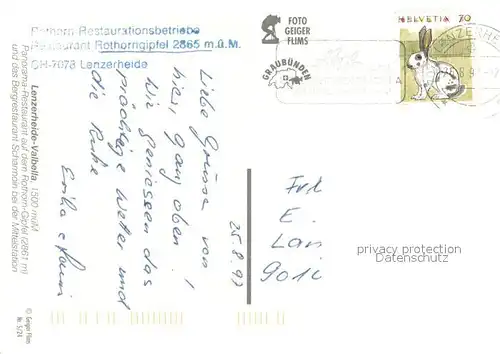 Rothorn-Restaurationsbetriebe
Restaurant Rothorngipfel 2865 m.ü.M.
CH-7078 Lenzerheide
FOTO
GEIGER
FLIMS
GRAUBÜNDEN
HELVETIA 70
LENZERHE
Lenzerheide-Valbella, 1500 müM
Panorama-Restaurant auf dem Rothorn-Gipfel (2861 m)
und das Bergrestaurant Scharmoin bei der Mittelstation
© Geiger Flims
Nr. 5/24
25.8.92
Liebe Grüsse von
hier, ganz oben!
Wir geniessen das
prächtige Wetter und
die Ruhe
Frl
E.
Lan
9012
privacy protection
Datenschutz